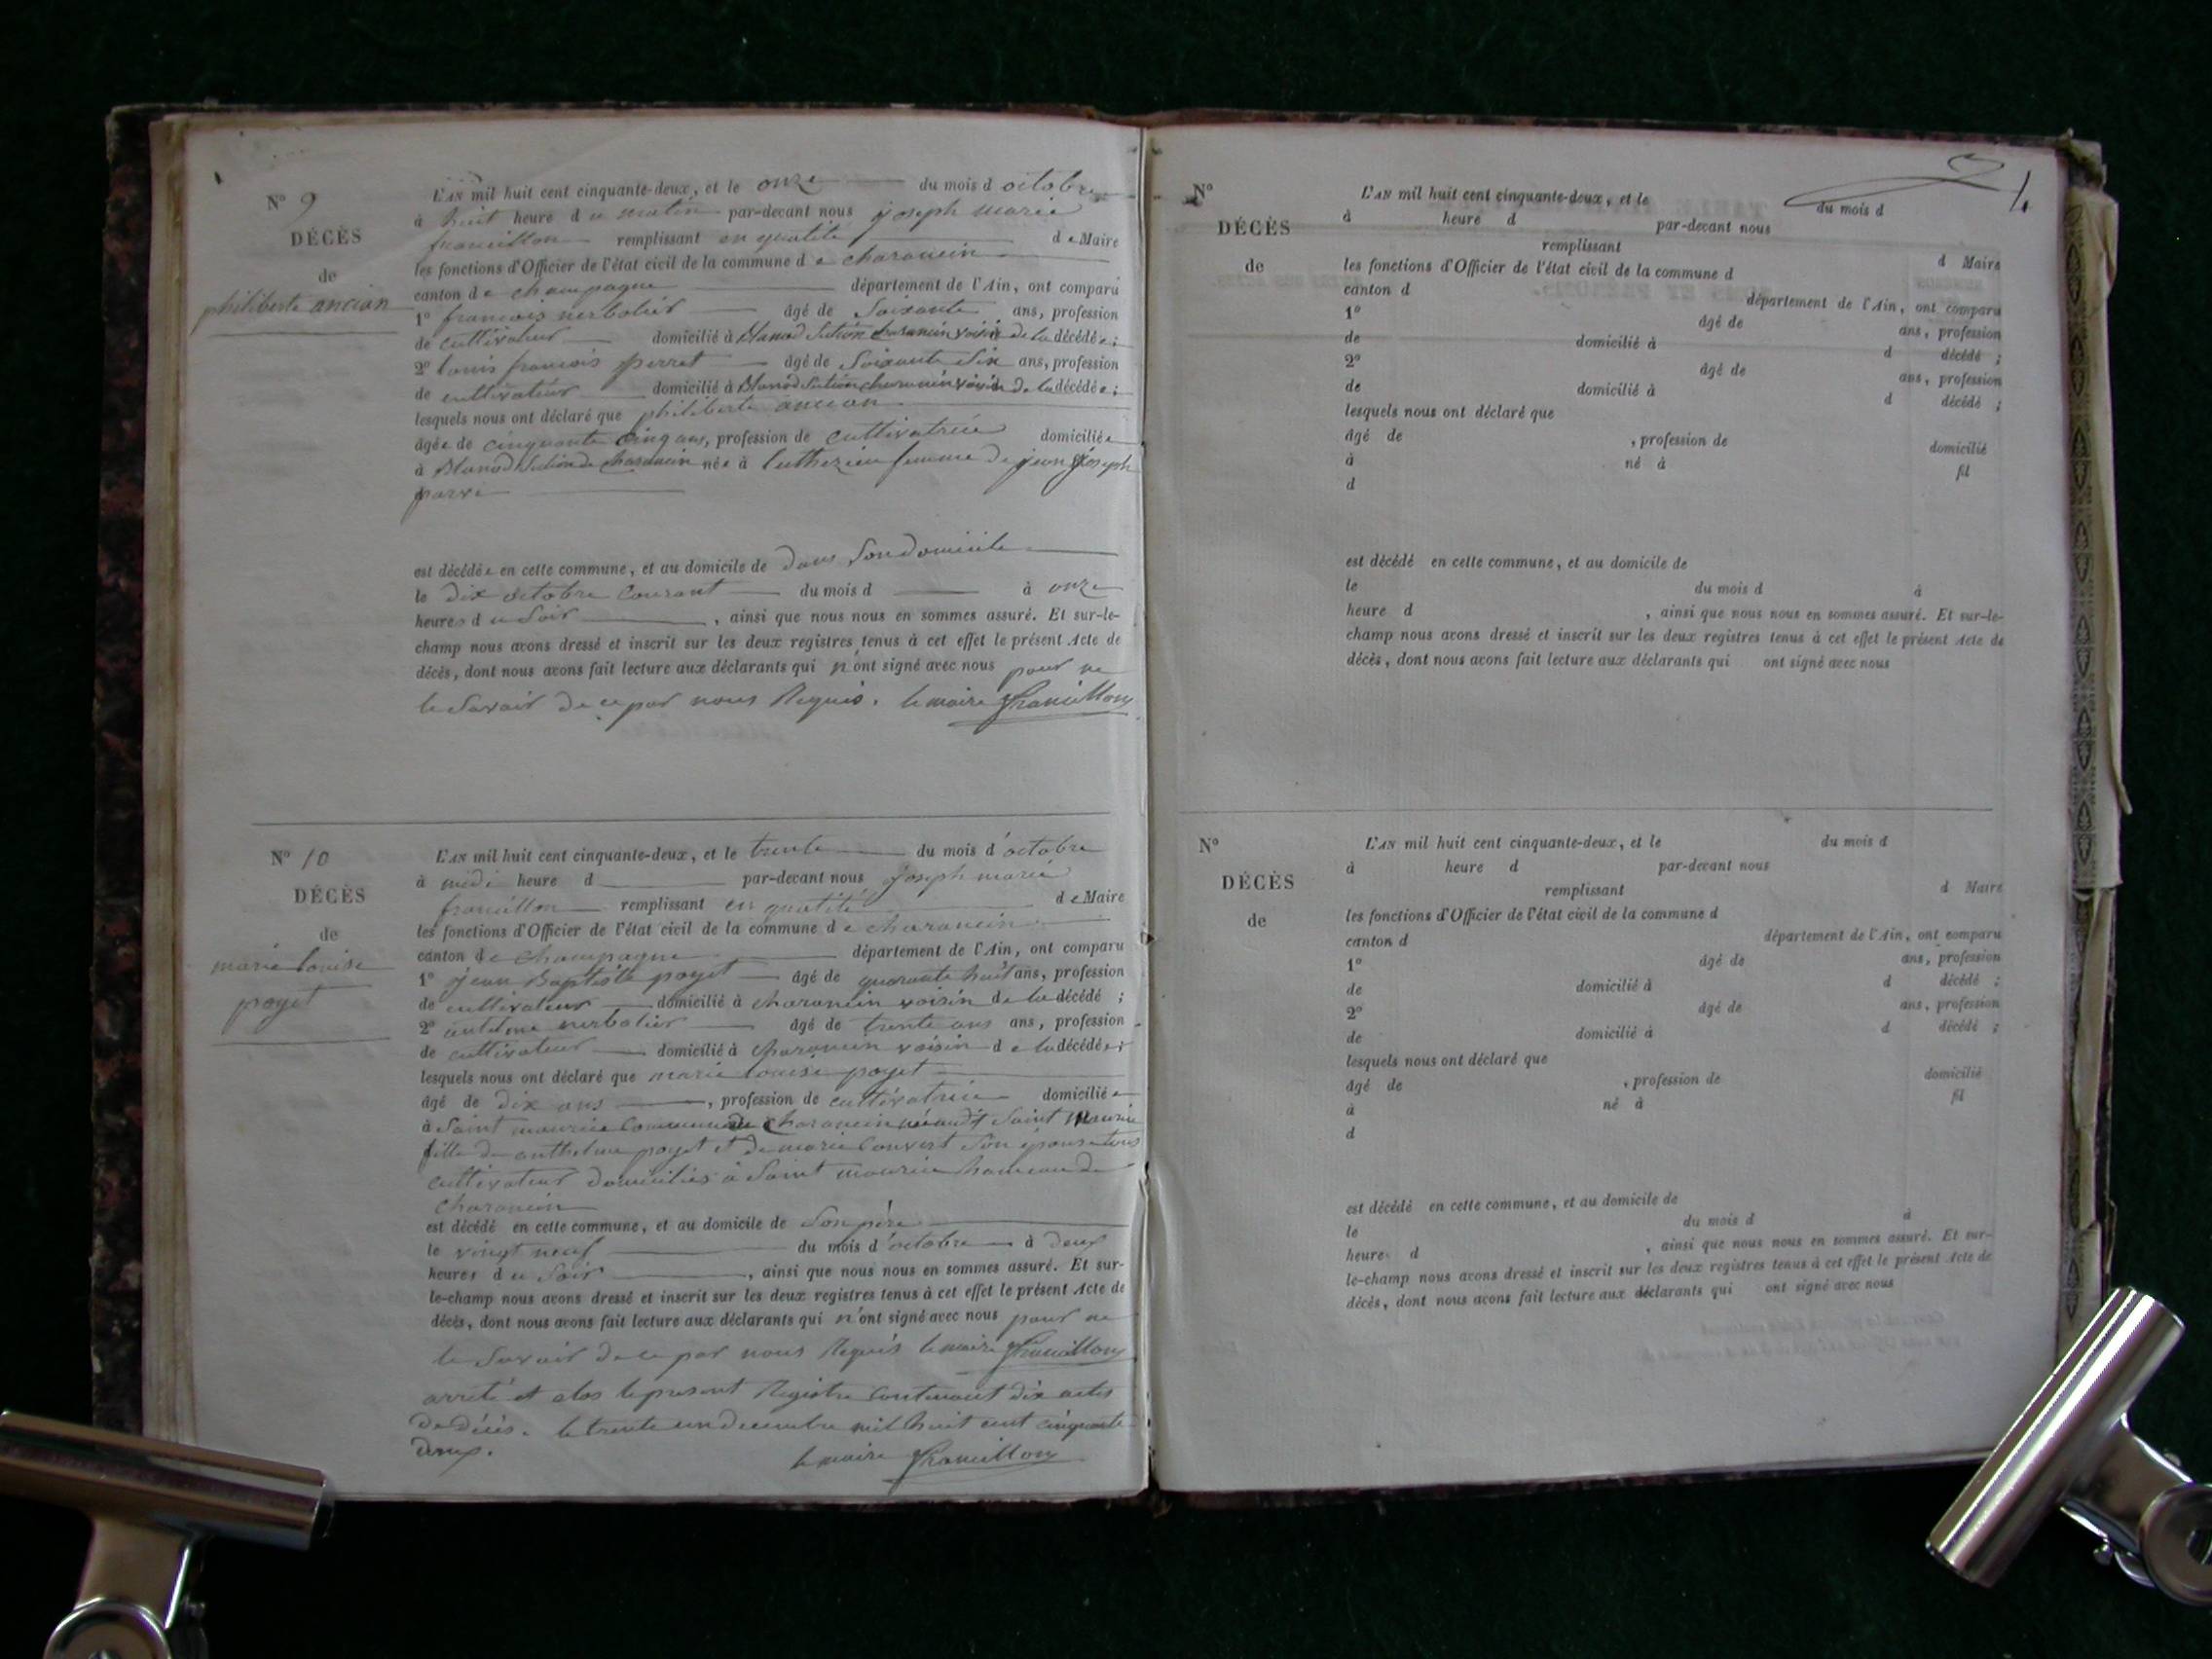 N° 9
DÉCÈS
de
philiberte ancian
L'AN mil huit cent cinquante-deux, et le onze du mois d octobre
à huit heure d u matin par-devant nous joseph marie
francillon remplissant en qualité d e Maire
les fonctions d'Officier de l'état civil de la commune d e charancin
canton d e champagne département de l'Ain, ont comparu
1° francois nerbolier âgé de Soixante ans, profession
de cultivateur domicilié à Section charancin voisin de la décédée ;
2° louis francois perret âgé de Soixante Six ans, profession
de cultivateur domicilié à Section charancin voisin de la décédée ;
lesquels nous ont déclaré que philiberte ancian
âgée de cinquante cinq ans, profession de cultivatrice domiciliée
à Section de Charancin née à luthezieu femme de jean joseph
parra
est décédée en cette commune, et au domicile de dans Son domicile
le dix octobre Courant du mois d à onze
heures d u Soir , ainsi que nous nous en sommes assuré. Et sur-le-
champ nous avons dressé et inscrit sur les deux registres tenus à cet effet le présent Acte de
décès, dont nous avons fait lecture aux déclarants qui n'ont signé avec nous pour ne
le Savoir de ce par nous Requis. le maire francillon
N° 10
DÉCÈS
de
marie louise
poyet
L'AN mil huit cent cinquante-deux, et le trente du mois d'octobre
à midi heure d par-devant nous joseph marie
francillon remplissant en qualité d e Maire
les fonctions d'Officier de l'état civil de la commune d e charancin
canton d e champagne département de l'Ain, ont comparu
1° jean Baptiste poyet âgé de quarante huit ans, profession
de cultivateur domicilié à charancin voisin de la décédé ;
2° antelme nerbolier âgé de trente ans ans, profession
de cultivateur domicilié à charancin voisin d e la décédée ;
lesquels nous ont déclaré que marie louise poyet
âgé de dix ans , profession de cultivatrice domiciliée
à Saint maurice Commune de Charancin née audt Saint Maurice
fille de anthelme poyet et de marie Convert Son épouse tous
cultivateur domiciliés à Saint maurice hameau de
charancin
est décédé en cette commune, et au domicile de Son père
le vingt neuf du mois d'octobre à deux
heures d u Soir , ainsi que nous nous en sommes assuré. Et sur-
le-champ nous avons dressé et inscrit sur les deux registres tenus à cet effet le présent Acte de
décès, dont nous avons fait lecture aux déclarants qui n'ont signé avec nous pour ne
le Savoir de ce par nous Requis le maire francillon
arrêté et clos le present Registre Contenant dix actes
de décès. le trente un decembre mil huit cent cinquante
deux.
le maire francillon
N°
DÉCÈS
de
L'AN mil huit cent cinquante-deux, et le du mois d
à heure d par-devant nous
remplissant d Maire
les fonctions d'Officier de l'état civil de la commune d
canton d département de l'Ain, ont comparu
1° âgé de ans, profession
de domicilié à d décédé ;
2° âgé de ans, profession
de domicilié à d décédé ;
lesquels nous ont déclaré que
âgé de , profession de domicilié
à né à fil
d
est décédé en cette commune, et au domicile de
le du mois d à
heure d , ainsi que nous nous en sommes assuré. Et sur-le-
champ nous avons dressé et inscrit sur les deux registres tenus à cet effet le présent Acte de
décès, dont nous avons fait lecture aux déclarants qui ont signé avec nous
N°
DÉCÈS
de
L'AN mil huit cent cinquante-deux, et le du mois d
à heure d par-devant nous
remplissant d Maire
les fonctions d'Officier de l'état civil de la commune d
canton d département de l'Ain, ont comparu
1° âgé de ans, profession
de domicilié à d décédé ;
2° âgé de ans, profession
de domicilié à d décédé ;
lesquels nous ont déclaré que
âgé de , profession de domicilié
à né à fil
d
est décédé en cette commune, et au domicile de
le du mois d à
heures d , ainsi que nous nous en sommes assuré. Et sur-
le-champ nous avons dressé et inscrit sur les deux registres tenus à cet effet le présent Acte de
décès, dont nous avons fait lecture aux déclarants qui ont signé avec nous